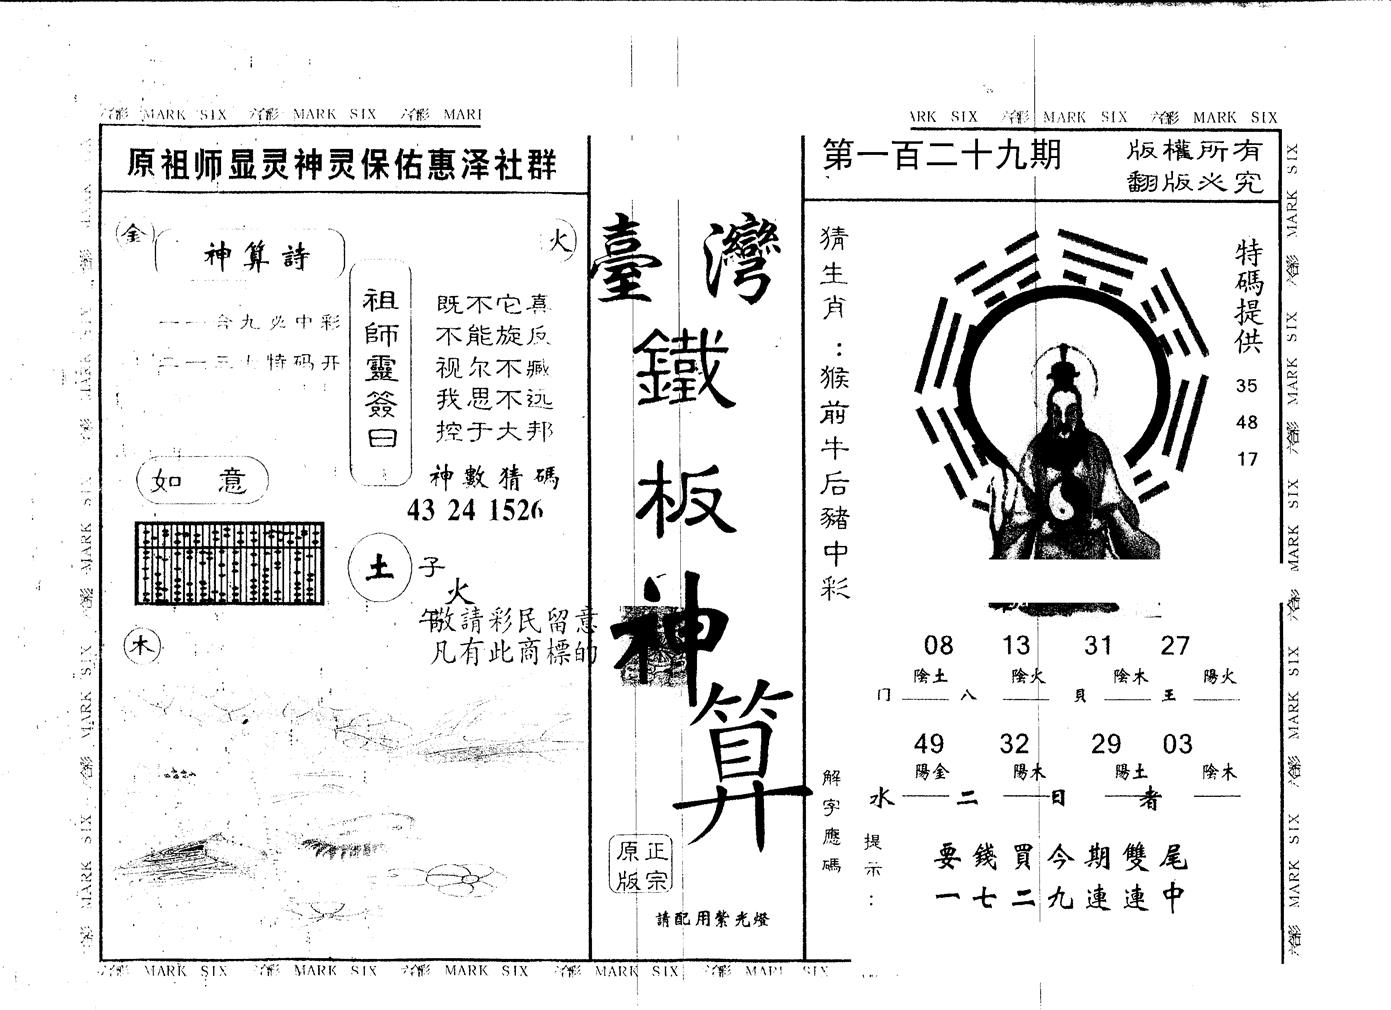 六合彩 MARK SIX 六合彩 MARK SIX 六合彩 MARK
MARK SIX 六合彩 MARK SIX 六合彩 MARK SIX
原祖师显灵神灵保佑惠泽社群
金
火
神算詩
一一合九必中彩
特码开
祖師靈簽曰
既不它真
不能旋反
视尔不臧
我思不远
控于大邦
神數猜碼
43 24 1526
如意
土
子
火
午
木
敬請彩民留意
凡有此商標的
臺灣
鐵板神算
正宗
原版
請配用紫光燈
第一百二十九期
版權所有
翻版必究
猜生肖：猴前牛后豬中彩
特碼提供
35
48
17
08 13 31 27
陰土 陰火 陰木 陽火
门 八 貝 王
49 32 29 03
陽金 陽木 陽土 陰木
水 二 日 者
解字應碼
提示：
要錢買今期雙尾
一七二九連連中
六合彩 MARK SIX 六合彩 MARK SIX 六合彩 MARK SIX 六合彩 MARK SIX 六合彩 MARK SIX